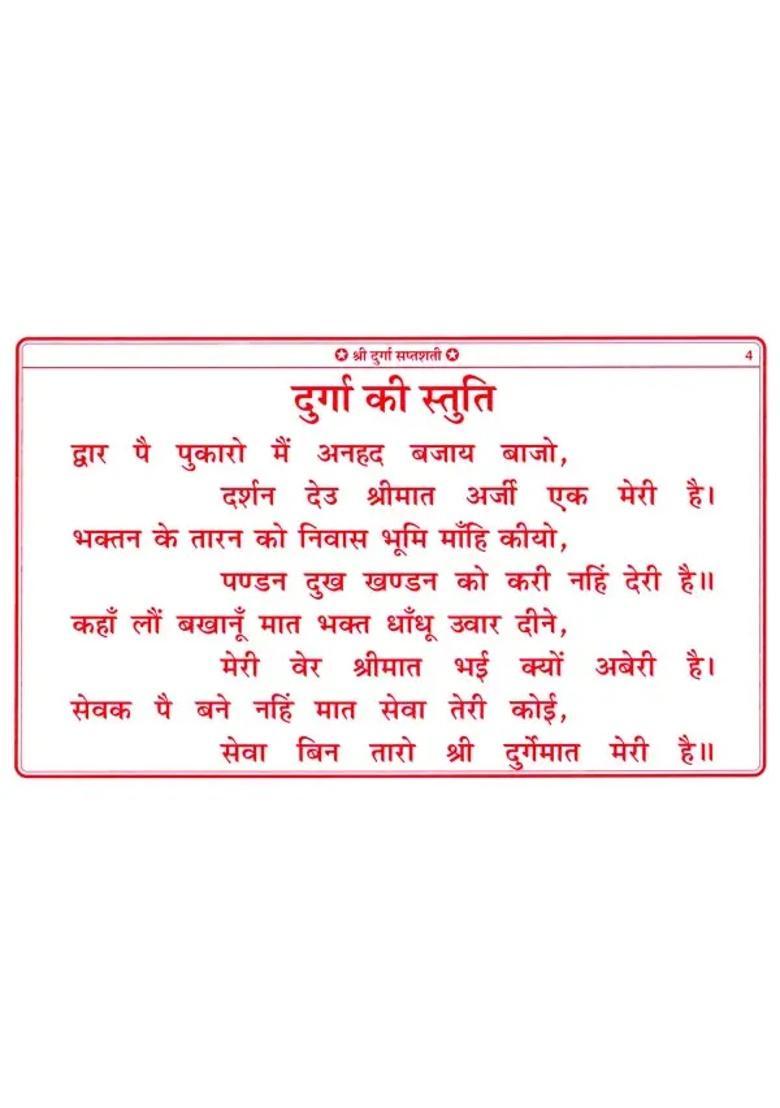 ✪ श्री दुर्गा सप्तशती ✪ 4
दुर्गा की स्तुति
द्वार पै पुकारो मैं अनहद बजाय बाजो,
दर्शन देउ श्रीमात अर्जी एक मेरी है।
भक्तन के तारन को निवास भूमि माँहि कीयो,
पण्डन दुख खण्डन को करी नहिं देरी है॥
कहाँ लौं बखानूँ मात भक्त धाँधू उवार दीने,
मेरी वेर श्रीमात भई क्यों अबेरी है।
सेवक पै बने नहिं मात सेवा तेरी कोई,
सेवा बिन तारो श्री दुर्गेमात मेरी है॥